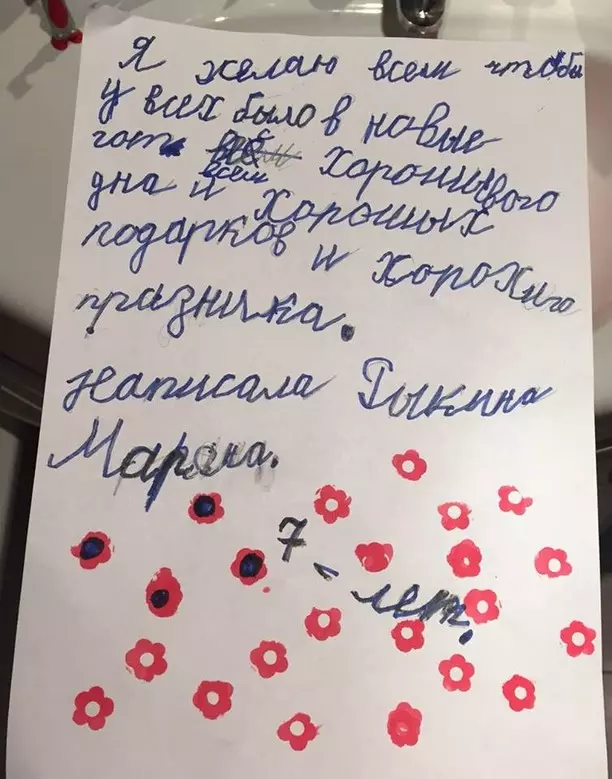 Я желаю всем чтобы
у всех было в новые
гот всем хорошывого
дна и хорошых
подарков и хорохиго
празника.
Написала Гыкина
Марана.
7 - лет.